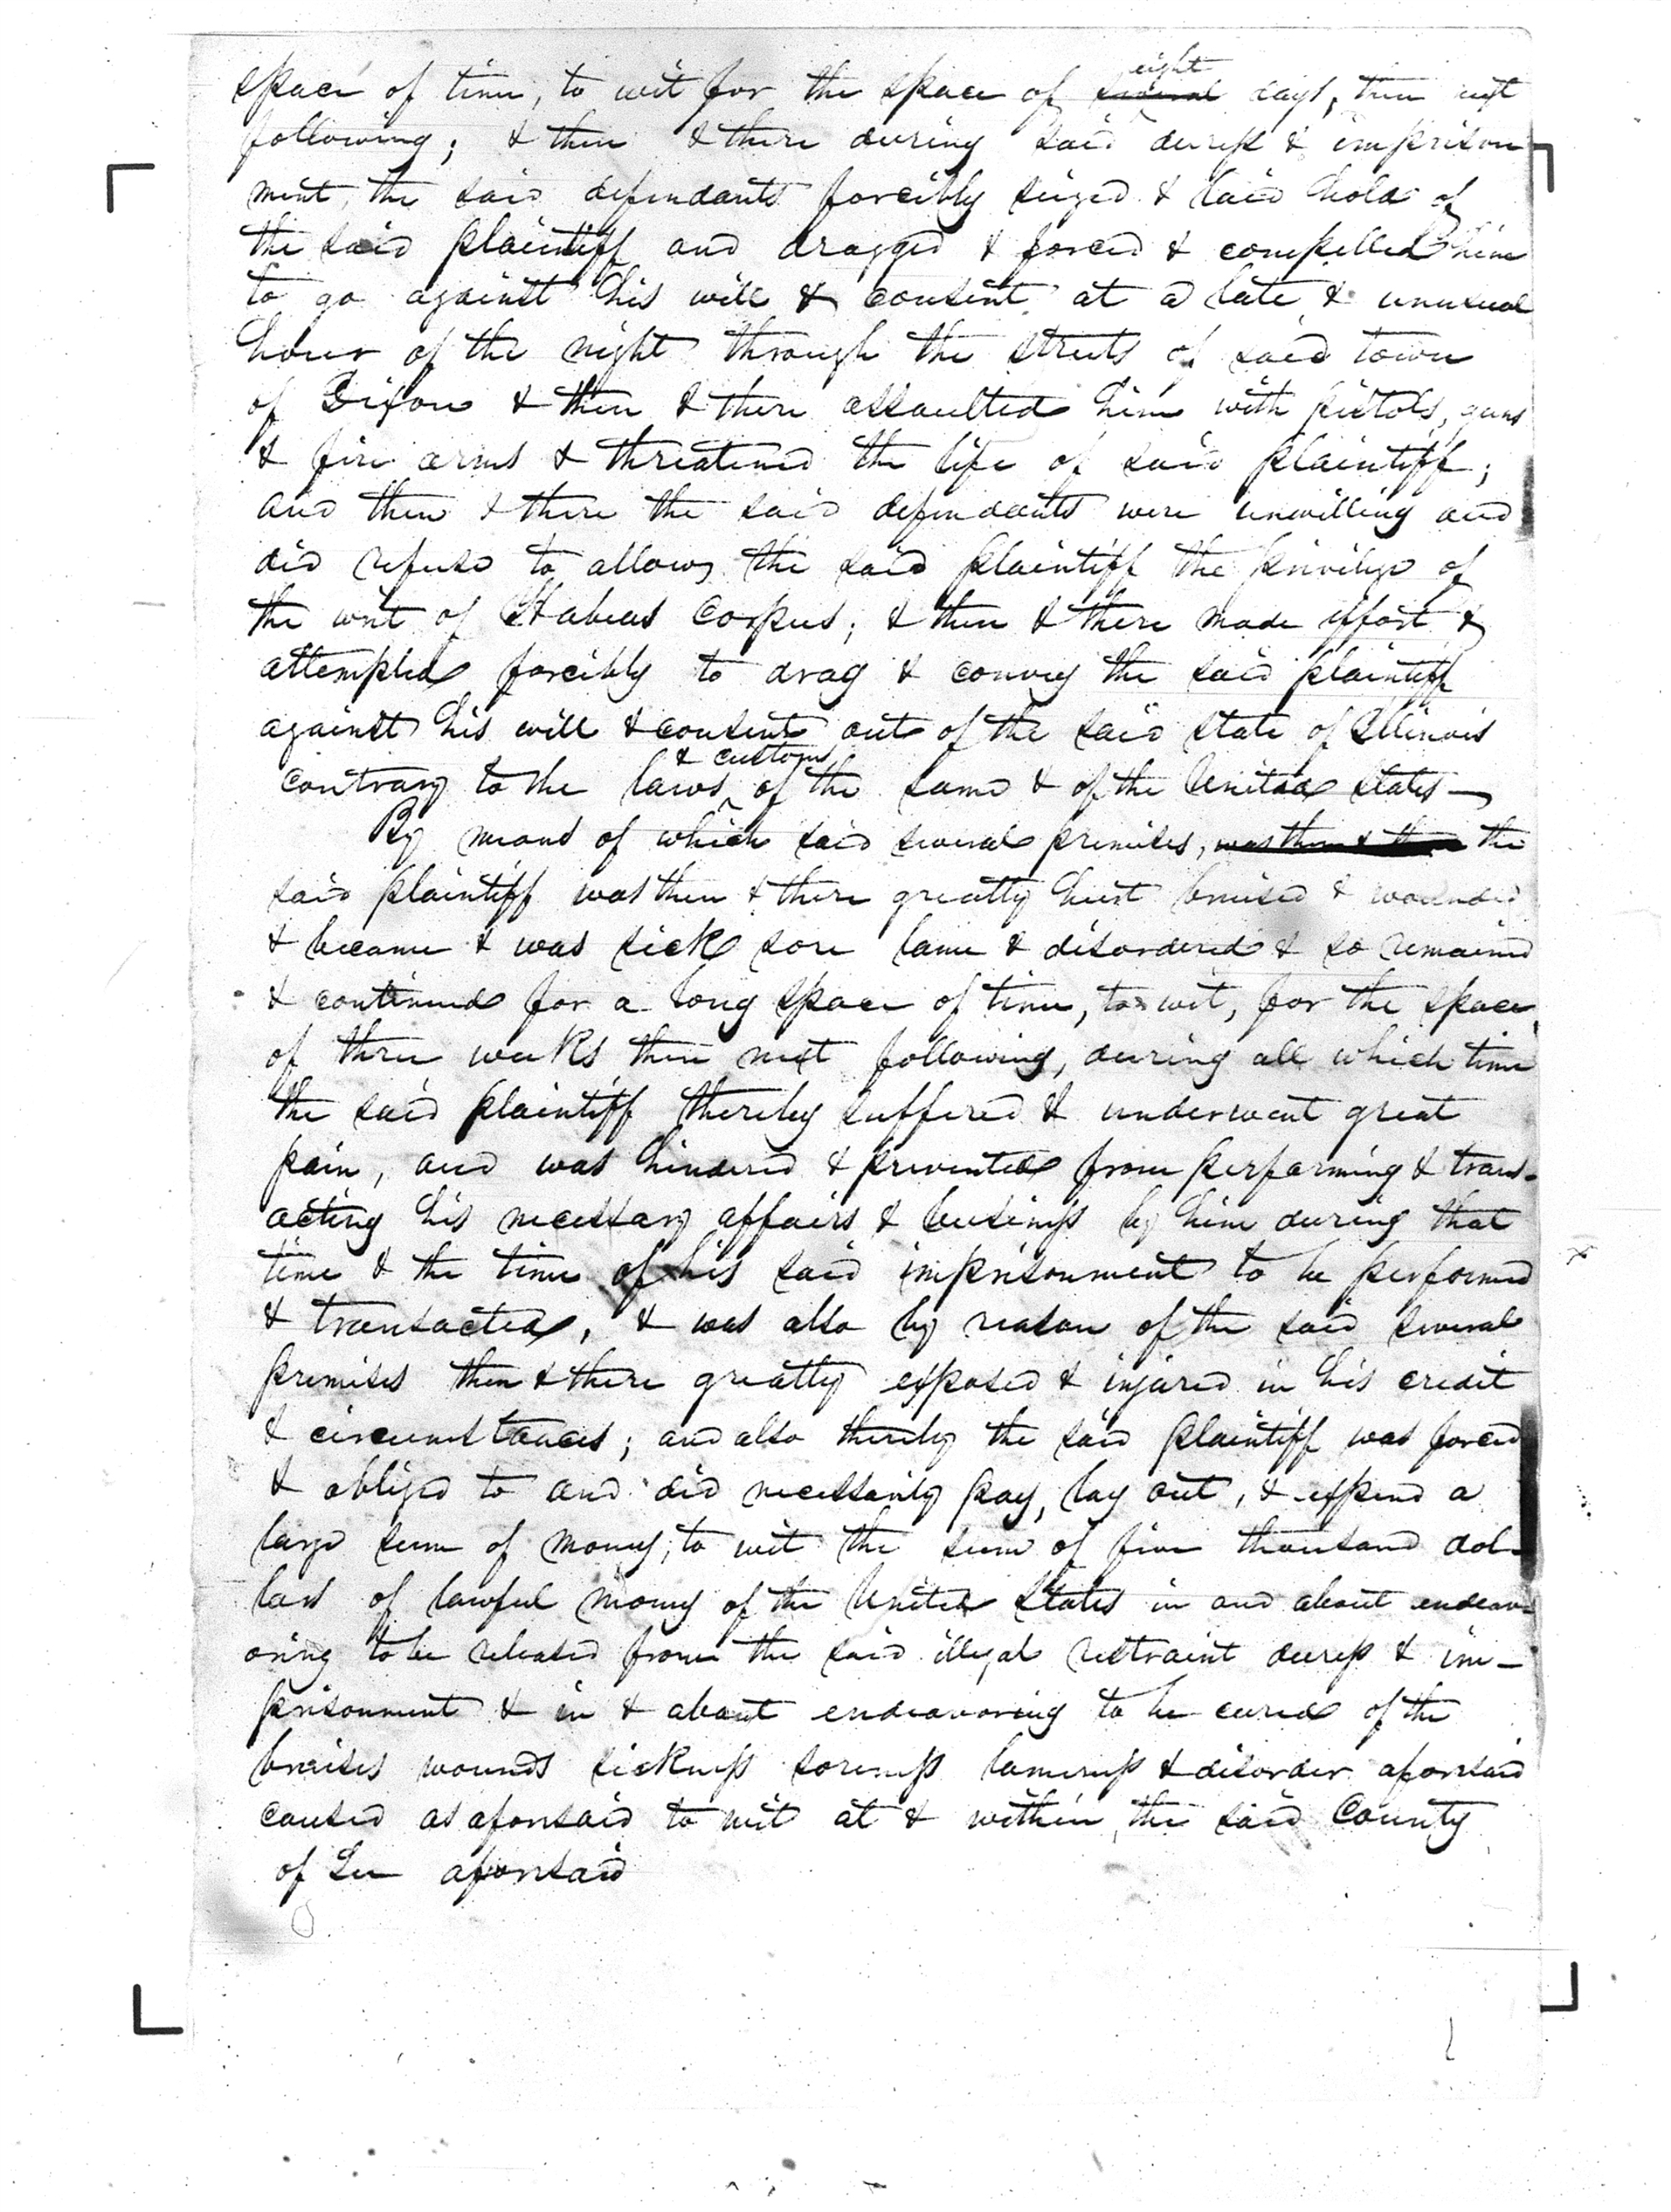 space of time, to wit for the space of several eight days, then next
following; & then & there during said duress & imprison
ment, the said defendants forcibly seized & laid hold of
the said plaintiff and dragged & forced & compelled him
to go against his will & consent at a late & unusual
hour of the night through the streets of said town
of Dixon & then & there assaulted him with pistols, guns
& fire arms & threatened the life of said plaintiff;
and then & there the said defendants were unwilling and
did refuse to allow the said plaintiff the privilege of
the writ of Habeas Corpus; & then & there made effort &
attempted forcibly to drag & convey the said plaintiff
against his will & consent out of the said state of Illinois
contrary to the laws & customs of the same & of the United States —
By means of which said several premises, was then & there the
said plaintiff was then & there greatly hurt bruised & wounded
& became & was sick sore lame & disordered & so remained
& continued for a long space of time, to wit, for the space
of three weeks then next following, during all which time
the said plaintiff thereby suffered & underwent great
pain, and was hindered & prevented from performing & trans-
acting his necessary affairs & business by him during that
time & the time of his said imprisonment to be performed
& transacted, & was also by reason of the said several
premises then & there greatly exposed & injured in his credit
& circumstances; and also thereby the said plaintiff was forced
& obliged to and did necessarily pay, lay out, & expend a
large sum of money, to wit the sum of five thousand dol-
lars of lawful money of the United States in and about endeav-
oring to be released from the said illegal restraint duress & im-
prisonment & in & about endeavoring to be cured of the
bruises wounds sickness soreness lameness & disorder aforesaid
caused as aforesaid to wit at & within the said County
of Lee aforesaid